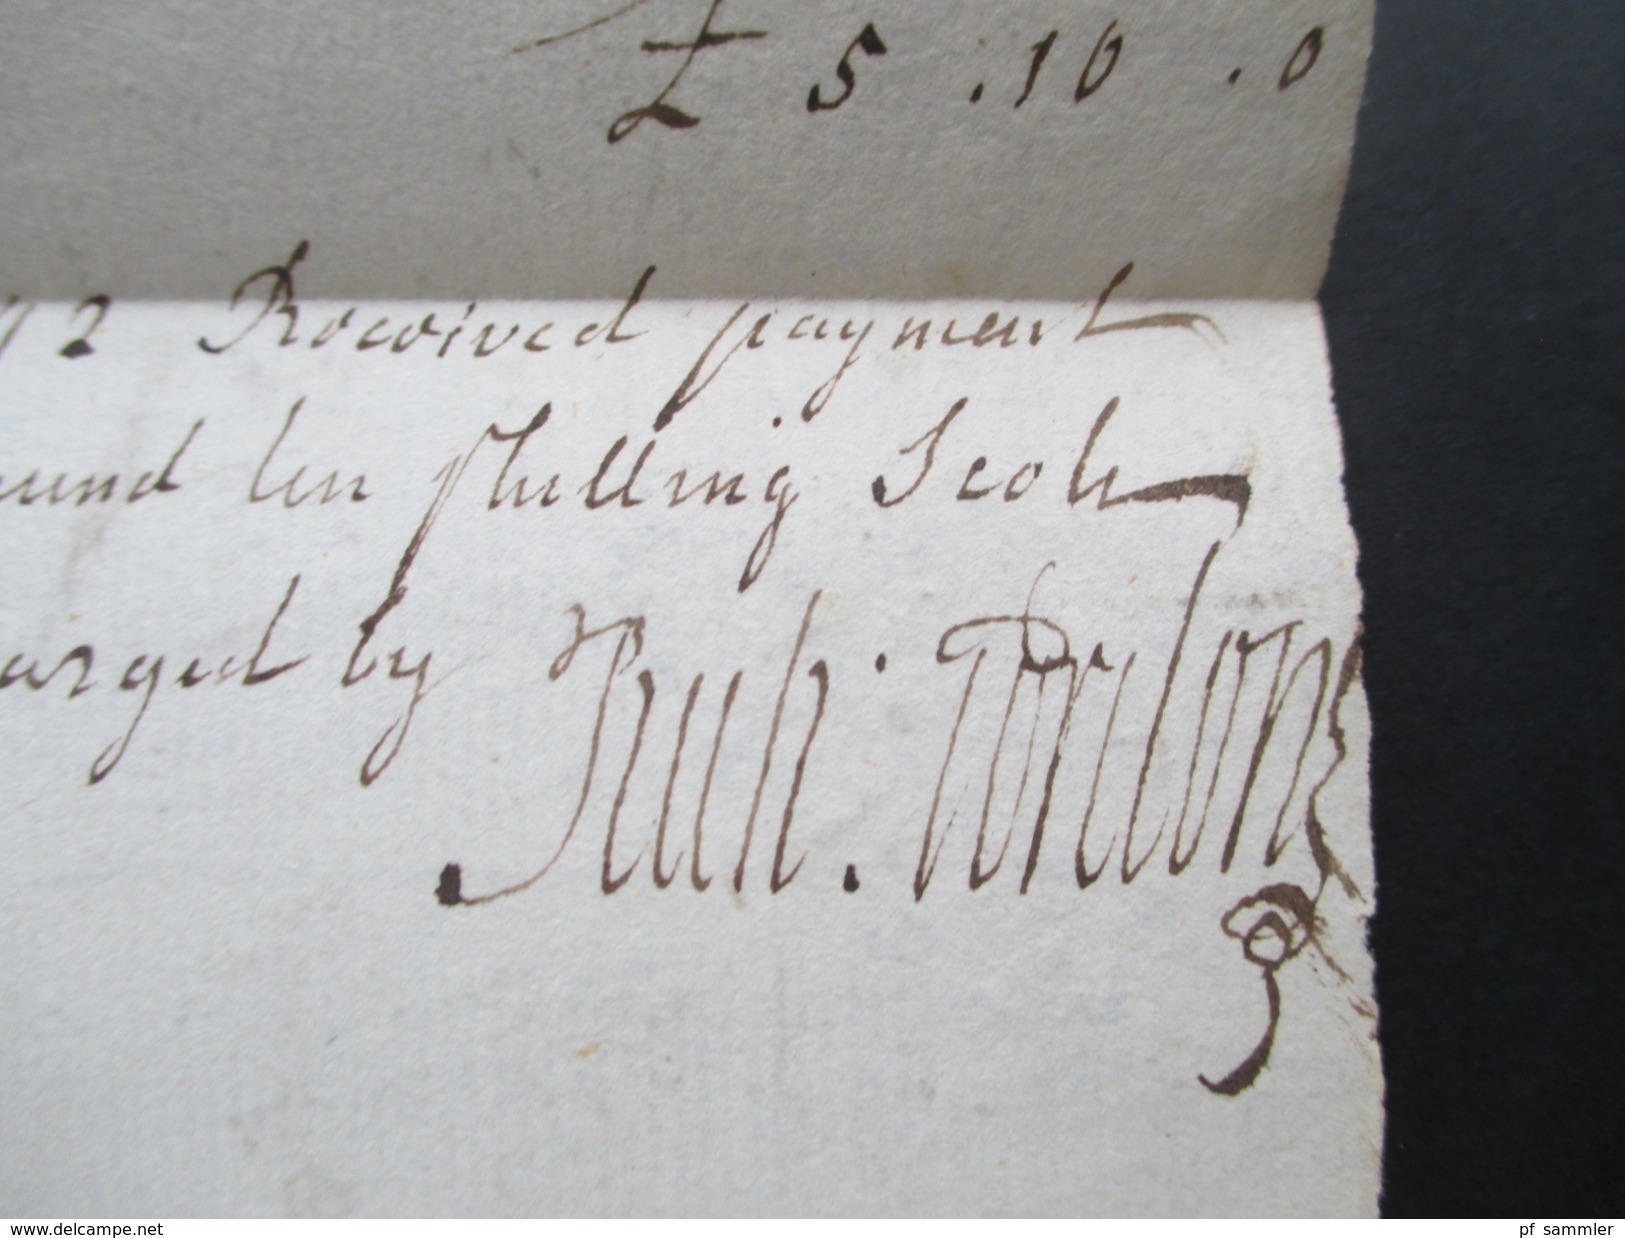 £ 5 . 10 . 0
2 Received payment
ound ten shilling Scots
arged by
www.delcampe.net
pf_sammler